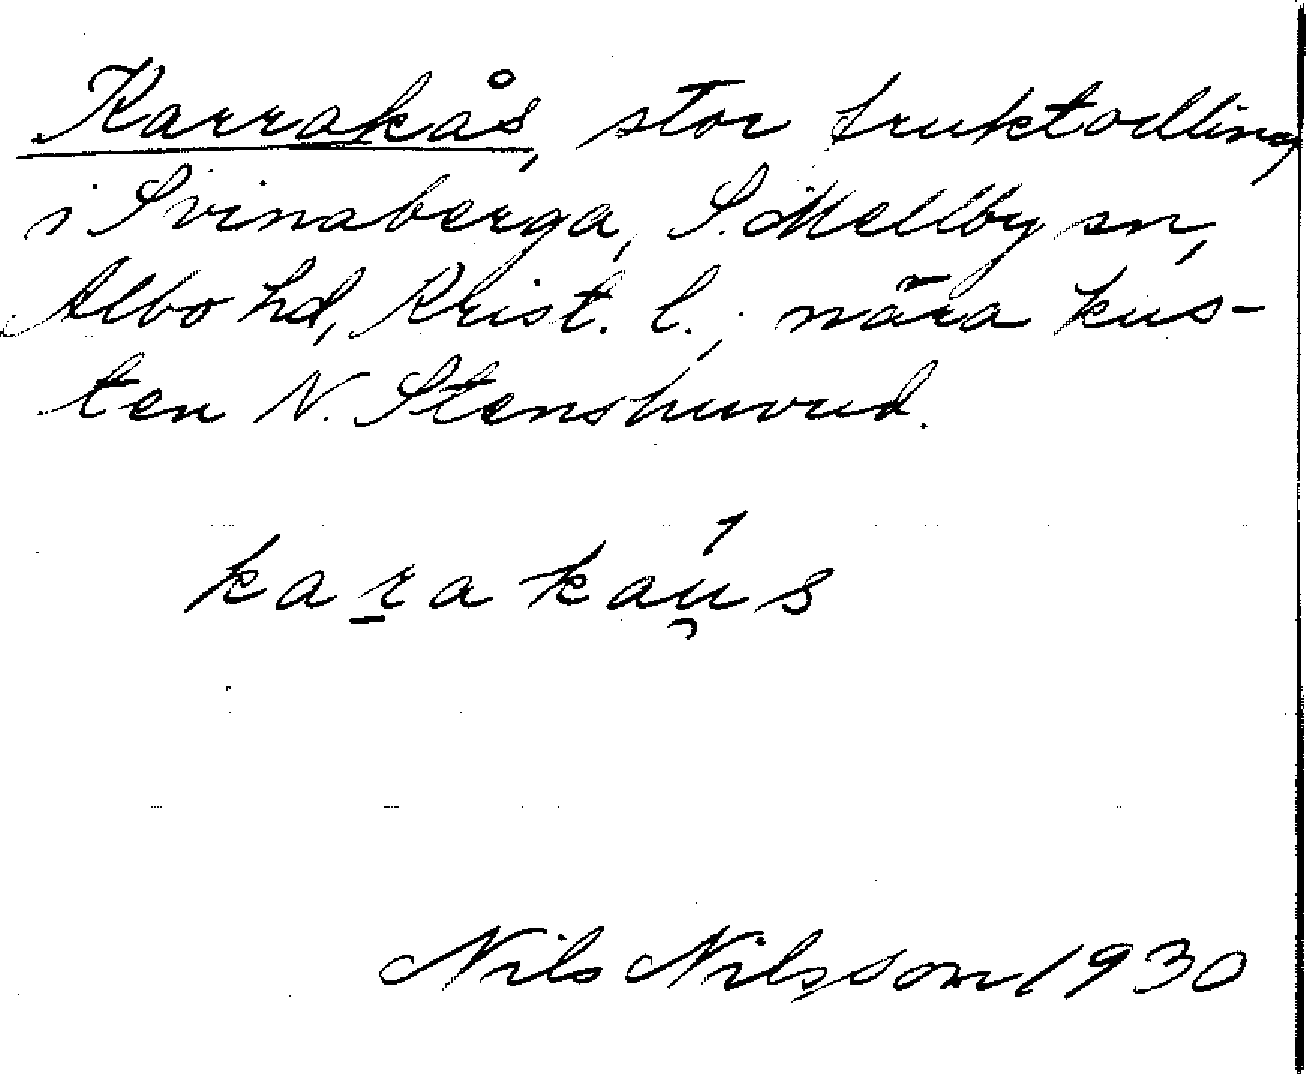 Karrakås, stor fruktodling
i Svinaberga, S. Mellby sn,
Albo hd, Krist. l., nära kus-
ten N. Stenshuvud.
karakau̯s
Nils Nilsson 1930